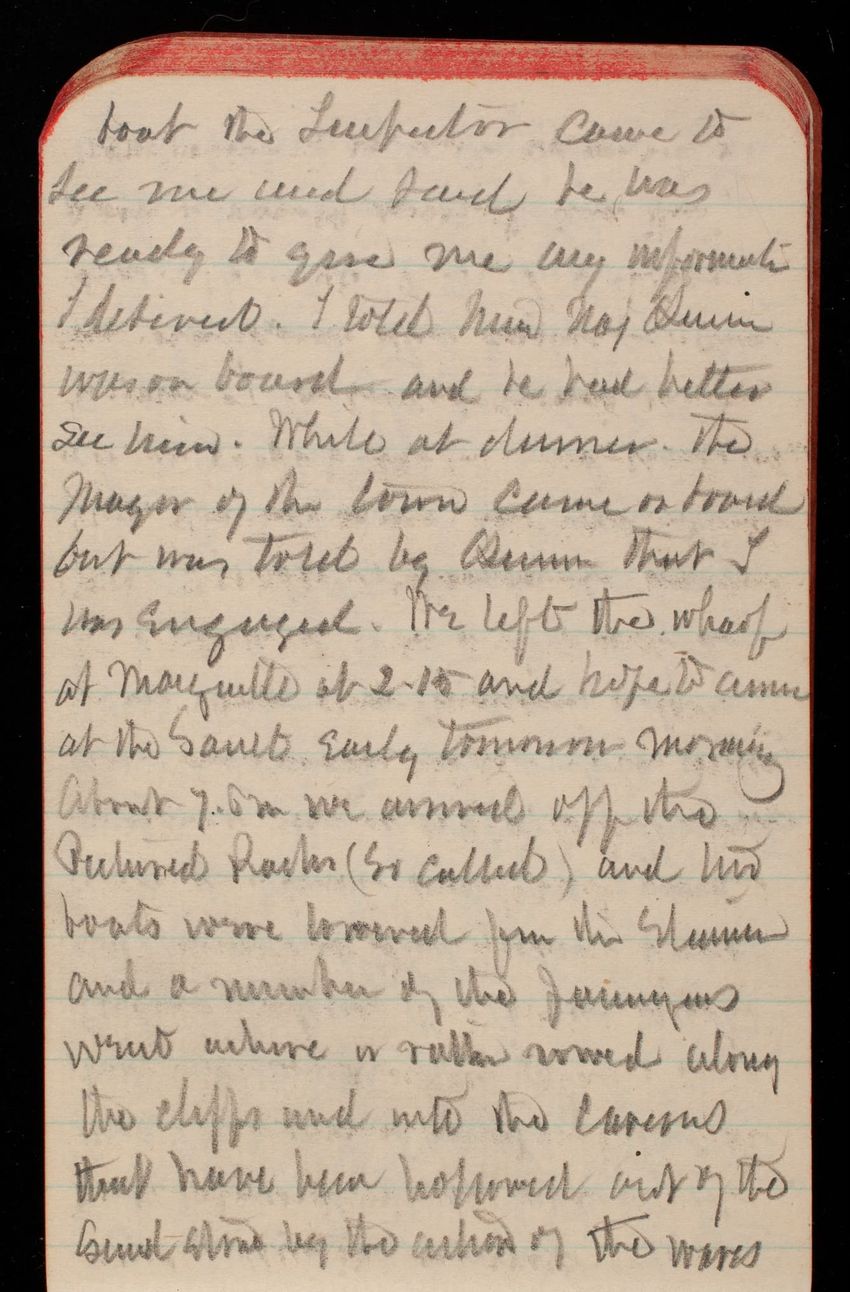 boat the Inspector came to
see me and said he was
ready to give me any informati
I desired. I told him Maj Quinn
was on board and he had better
see him. While at dinner the
Mayor of the town came on board
but was told by Quinn that I
was engaged. We left the wharf
at Marquette at 2-15 and hope to arrive
at the Sault early tomorrow morning
About 7. we arrived off the
Pictured Rocks (so called) and two
boats were lowered from the Steamer
and a number of the passengers
went ashore or rather rowed along
the cliffs and into the caverns
that have been hollowed out of the
Sand stone by the action of the waves